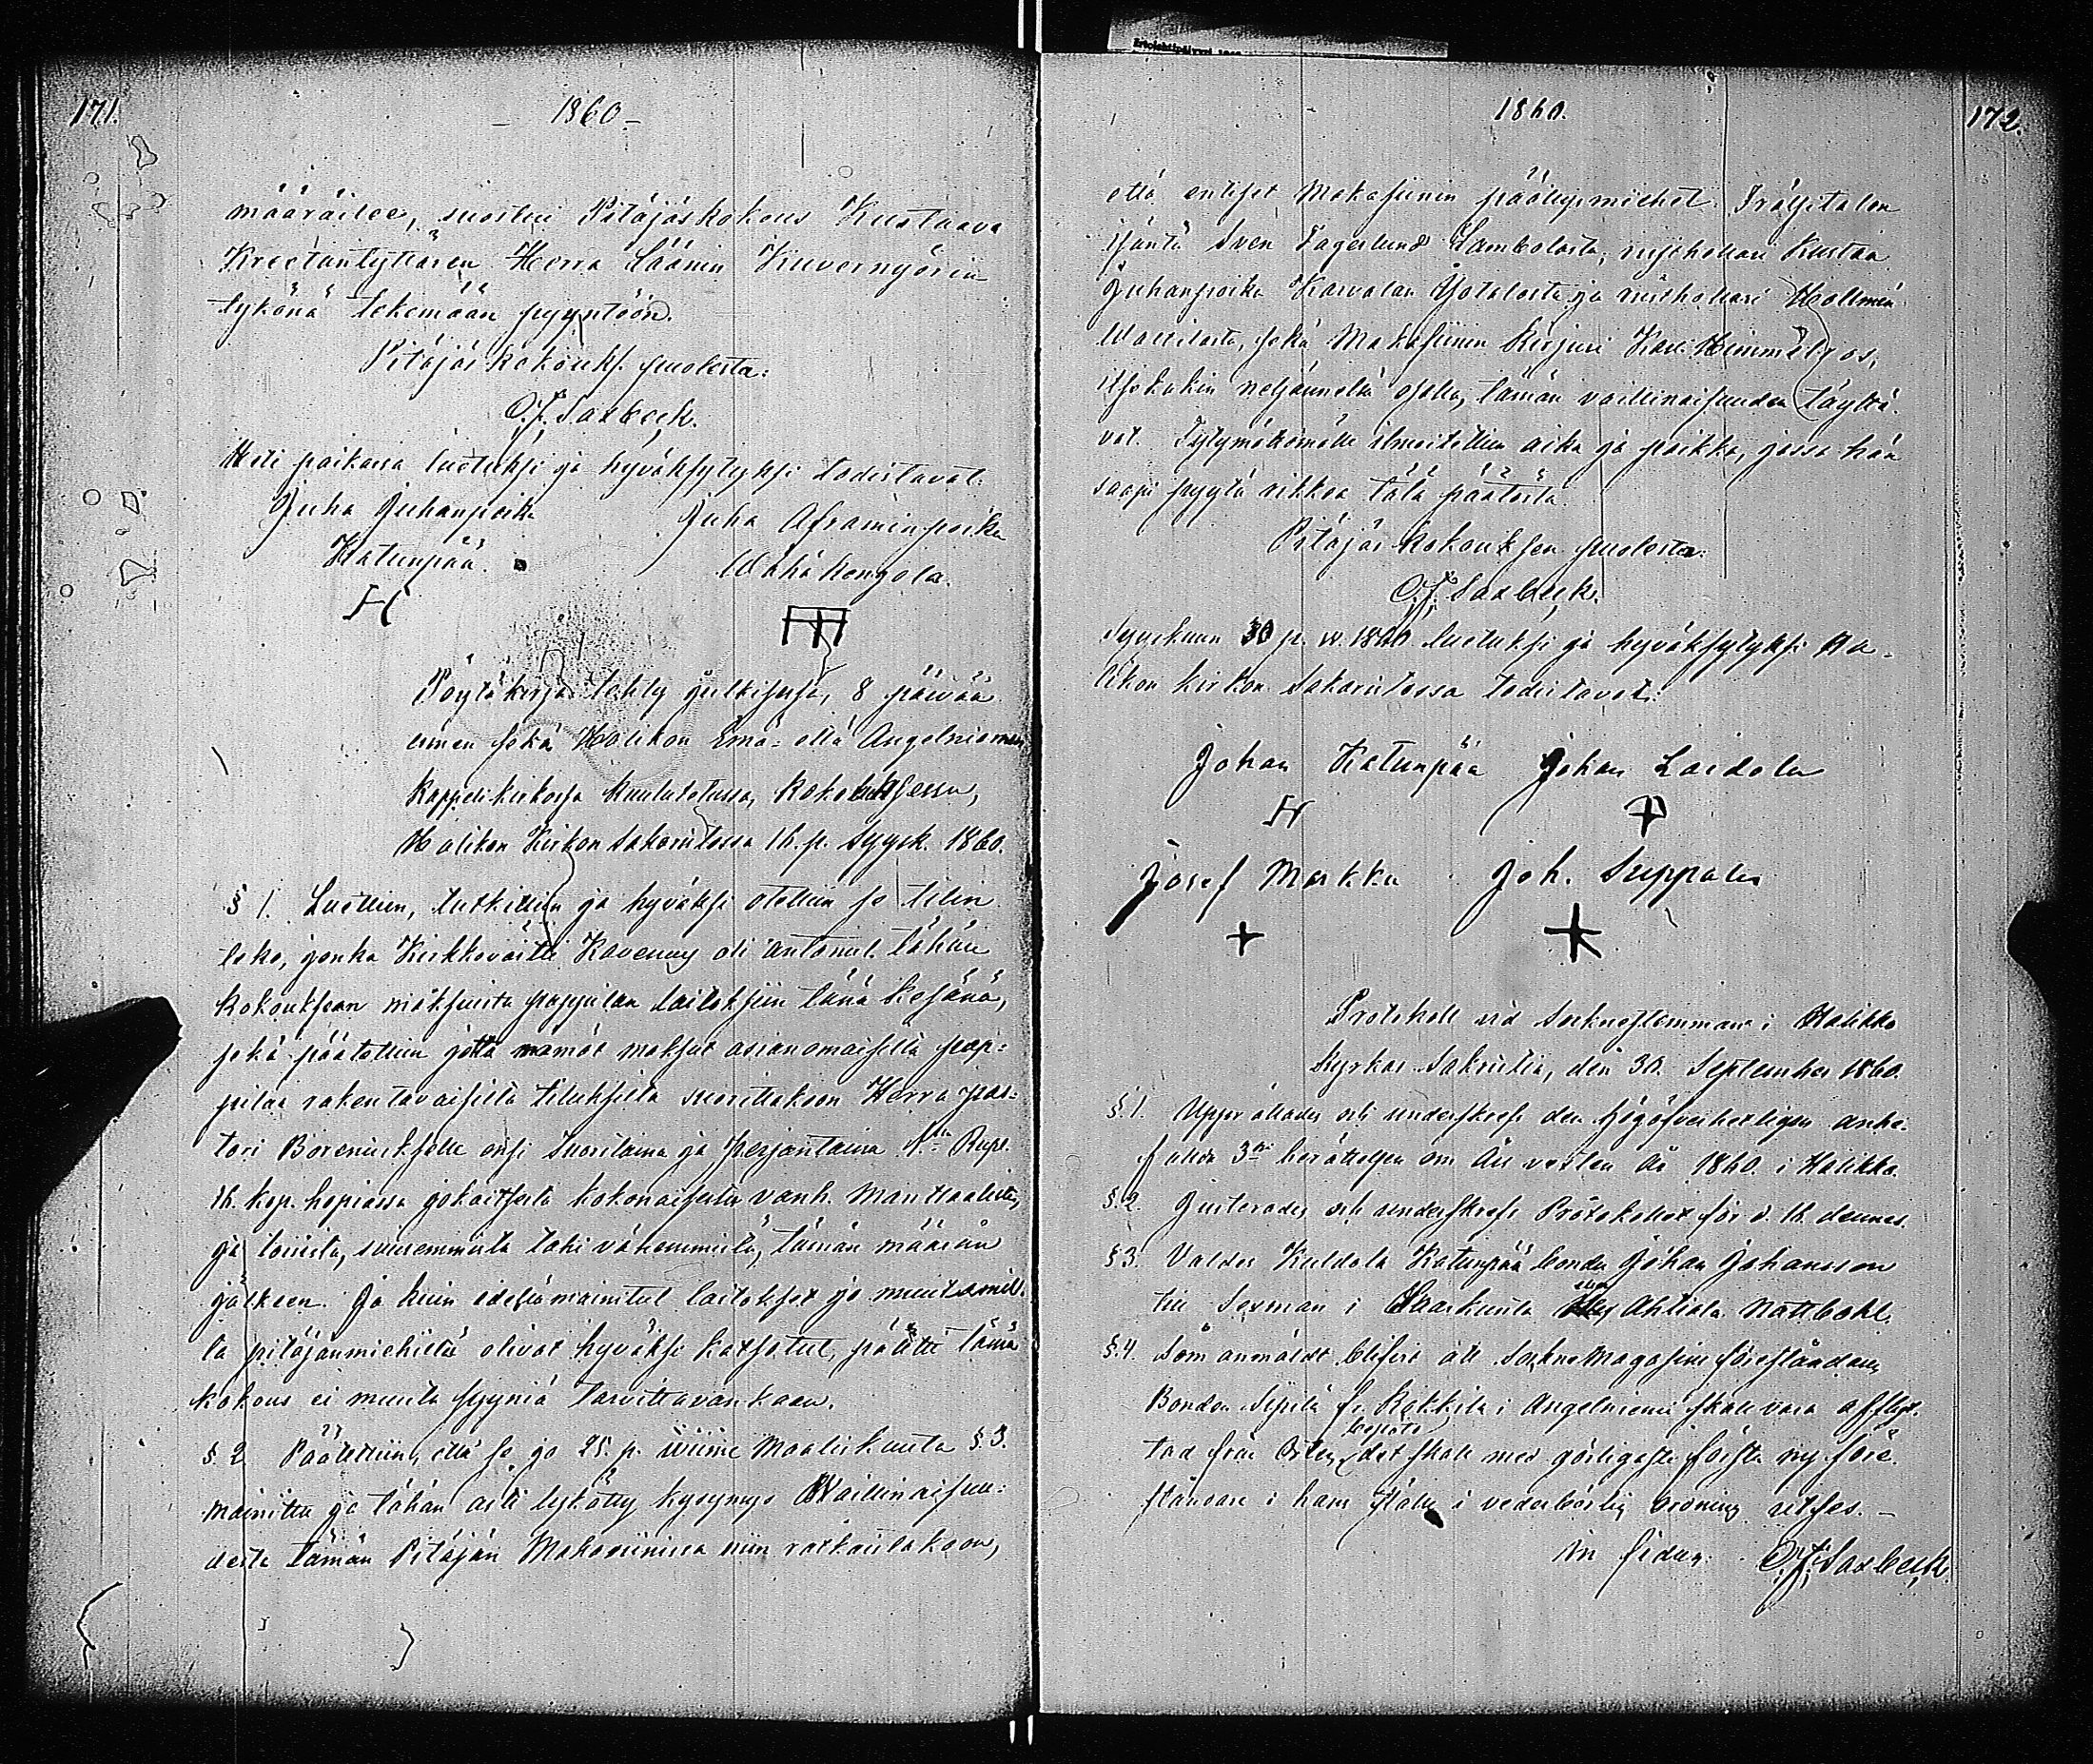 171.
– 1860 –
määräilee, suostui Pitäjäskokous Kustaava
Kreetantyttären Herra Läänin Kuvernyörin
tykönä tekemään pyyntöön.
Pitäjäs kokouks. puolesta:
O. J. Saxbeck.
Heti paikassa luetuksi ja hyväksytyksi todistavat.
Juha Juhanpoika Juha Aframinpoika
Katunpää. Wähä Hengola.
Pöytäkirja tehty julkisesa, 8 päivää
ennen sekä Halikon Emä- että Angelniemen
kappelikirkossa kuulutetussa, kokouksessa,
Halikon Kirkon Sakaristossa 16. p. Syysk. 1860.
§ 1. Luettiin, tutkittiin ja hyväksi otettiin se tilin
teko, jonka Kirkkoväärti Kavenius oli antanut tähän
kokouksen maksuista pappilan laitoksiin tänä kesänä,
sekä päätettiin jotta nämät maksut asianomaisilta pap=
pilaa rakentavaisilta tiluksilta suorittakoon Herra pas=
tori Boreniukselle ensi Suoritaina ja perjantaina 1. Rupl.
16. kop. hopiassa jokaitsesta kokonaisesta vanh. Manttaalista,
ja toisista, suuremmista tahi vähemmistä, tämän määrän
jälkeen. Ja kuin edellämainitut laitokset jo muutamil=
la pitäjänmiehillä olivat hyväksi katsotut, päätti tämä
kokous ei muuta syyniä tarvittavankaan.
§. 2. Päätettiin, että se jo 25. p. wiime Maaliskuuta §. 3.
mainittu ja tähän asti lykätty kysymys Waillinaisuu=
desta tämän Pitäjän Makasiinissa niin ratkaistakoon,
1860.
172.
että entiset Makasiinin päällysmiehet Trälsitalon
isäntä Sven Fagerlund Lambolasta, rusthollari Kustaa
Juhanpoika Karvalan Yötalosta ja rusthollari Hollmén
Wartsalasta, sekä Makasiinin kirjuri Karl Himmelroos,
itsekukin neljännellä osalla, tämän vaillinaisuuden täyttä-
vät. Tytymättömälle ilmoitettiin aika ja paikka, jossa hän
saapi pyytä rikkoa tätä päätöstä.
Pitäjäs kokouksen puolesta:
O. J. Saxbeck.
Syyskuun 30 p. v. 1860 luetuksi ja hyväksytyksi Ha-
likon kirkon Sakaristossa todistavat:
Johan Katunpää Johan Laidola
Josef Markku Joh. Seppala
Protokoll vid Socknestemman i Halikko
Kyrkas Sakristia, den 30. September 1860.
§. 1. Upprättades och underskrefs den högöfverhetligen anbe-
fallda 3die berättelsen om Års vexten År 1860. i Halikko.
§. 2. Justerades och underskrefs Protokollet för d. 16. dennes.
§. 3. Valdes Kuldola Katunpää bonde Johan Johansson
till Sexman i Ahtiala Nattbohl.
§. 4. Som anmäldt blifvit att Sockne Magasins föreståndaren
Bonden Seppilä fr. Kokkila i Angelniemi skall vara afflyt-
tad från Orten, beslöts det skall med görligaste första ny före-
ståndare i hans ställe i vederbörlig ordning utses. –
In fidem O. J. Saxbeck.